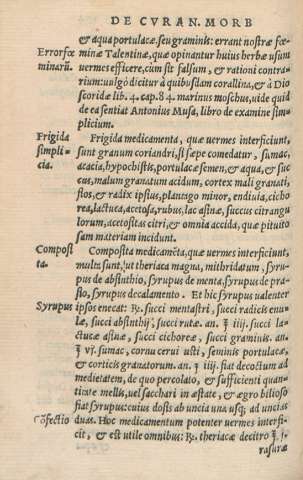 DE CVRAN. MORB
& aqua portulacæ. seu graminis: errant nostræ fœ-
Error fœ minæ Talentinæ, quæ opinantur huius herbæ usum
minarũ. uermes efficere, cùm sit falsum, & rationi contra-
rium: uulgò dicitur à quibusdam corallina, & à Dio
scoride lib. 4. cap. 84. marinus moschus, uide quid
de ea sentiat Antonius Musa, libro de examine sim-
plicium.
Frigida Frigida medicamenta, quæ uermes interficiunt,
simpli= sunt granum coriandri, si sæpe comedatur, sumac,
cia. acacia, hypochistis, portulacæ semen, & aqua, & suc
cus, malum granatum acidum, cortex mali granati,
flos, & radix ipsius, plantago minor, endiuia, cicho
rea, lactuca, acetosa, rubus, lac asinæ, succus citrangu
lorum, acetositas citri, & omnia accida, quæ pituito
sam materiam incidunt.
Composi Composita medicamẽta, quæ uermes interficiunt,
ta. multa sunt, ut theriaca magna, mithridatum, syru-
pus de absinthio, syrupus de menta, syrupus de pra-
sio, syrupus de calamento. Et hic syrupus ualenter
Syrupus ipsos enecat: ℞. succi mentastri, succi radicis enu-
læ, succi absinthij, succi rutæ. an. ℥ iij. succi la-
ctucæ asinæ, succi cichoreæ, succi graminis. an.
℥ vj. sumac, cornu cerui usti, seminis portulacæ,
& corticis granatorum. an. ℥ iiij. fiat decoctum ad
medietatem, de quo percolato, & sufficienti quan-
titate mellis, uel sacchari in æstate, & ægro bilioso
fiat syrupus: cuius dosis ab uncia una usq; ad uncias
Cõfectio duas. Hoc medicamentum potenter uermes interfi-
cit, & est utile omnibus: ℞. theriacæ decitro ℥ s.
rasuræ